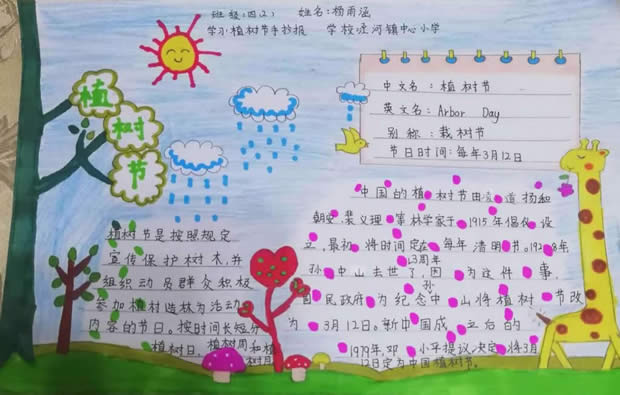 班级:四(2) 姓名:杨雨涵
学习植树节手抄报 学校:泾河镇中心小学
植
树
节
中文名:植树节
英文名:Arbor Day
别称:栽树节
节日时间:每年3月12日
植树节是按照规定
宣传保护树木,并
组织动员群众积极
参加植树造林为活动
内容的节日。按时间长短分
植树日、植树周和植
树月
中国的植树节由凌道扬和
朝史、裴义理等林学家于1915年倡仪设
立,最初将时间定在每年清明节。1928年
孙中山去世了,因3周年为这件事,
国民政府为纪念孙中山将植树节改
为3月12日。新中国成立后的
1979年,邓小平提议决定将3月
12日定为中国植树节。